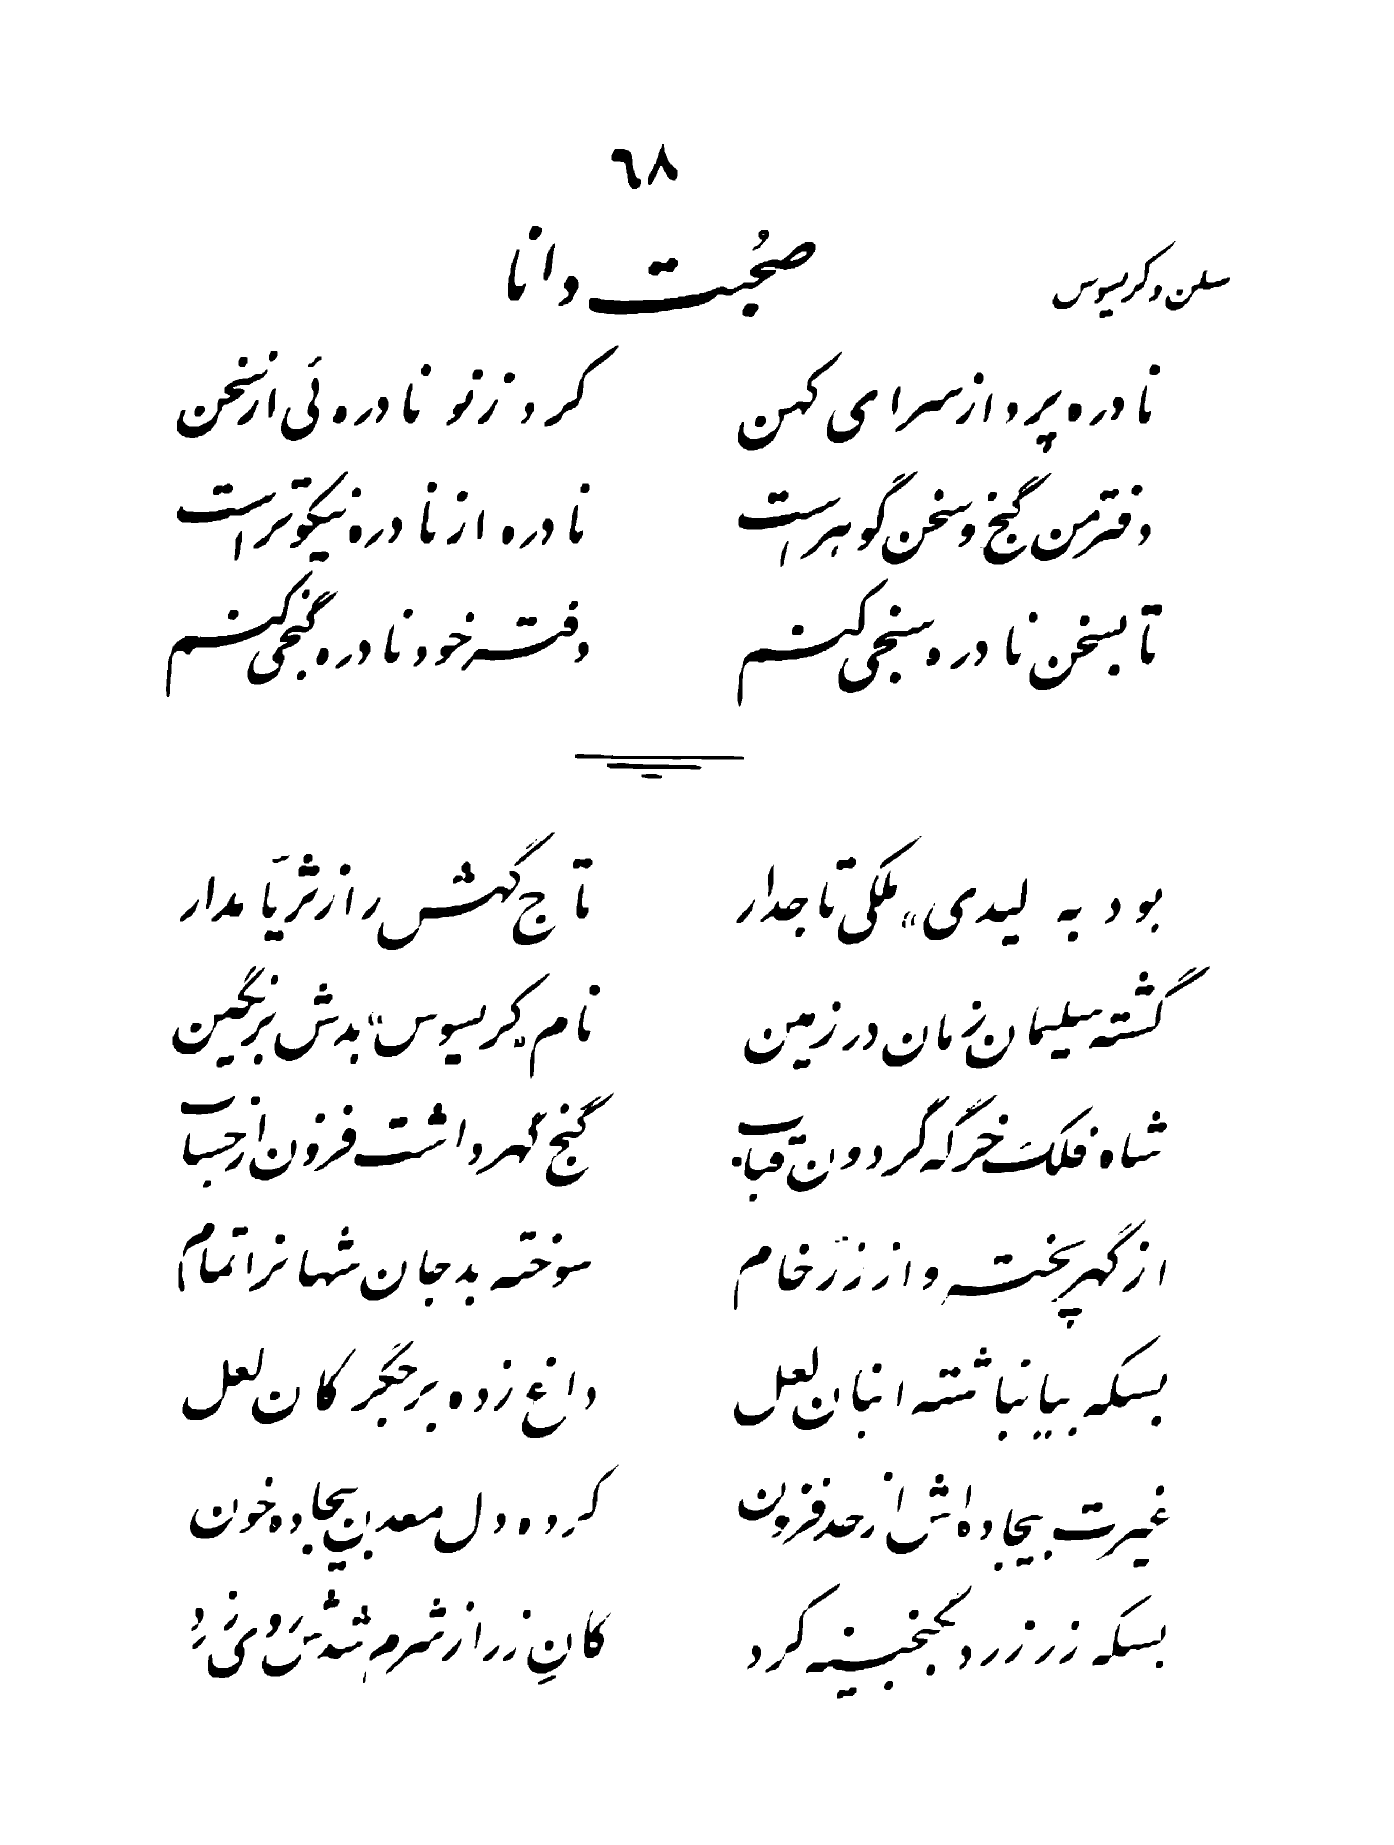 ٦٨
صُحبت دانا
سلن و کریسوس
نادره پرداز سرای کهن کرد ز نو نادره ئی از سخن
دفتر من گنج و سخن گوهر است نادره از نادره نیکوتر است
تا بسخن نادره سنجی کنم دفتر خود نادره گنجی کنم
بود به لیدی „ ملکی تاجدار تاج گهش را ز ثریّا مدار
گشته سلیمان زمان در زمین نام „کریسوس“ بدش بر نگین
شاه فلک خرگه گردون قباب گنج گهر داشت فزون از حساب
از گهر پخته و از زرّ خام سوخته بد جان شهانرا تمام
بسکه بیانباشته انبان لعل داغ زده بر جگر کان لعل
غیرت بیجاده اش از حد فزون کرده دل معدن بیجاده خون
بسکه زر زرد بگنجینه کرد کانِ زر از شرم شدش رَوی زرد